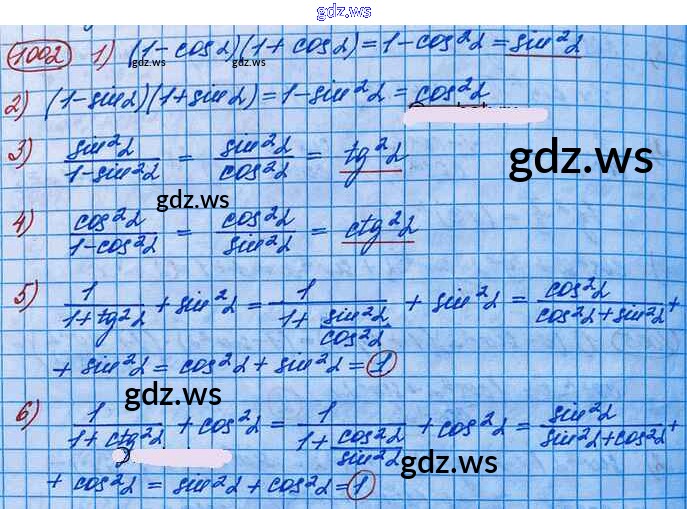 gdz.ws
1002 1) (1-cosα)(1+cosα)=1-cos²α=sin²α
gdz.ws gdz.ws
2) (1-sinα)(1+sinα)=1-sin²α=cos²α
3) sin²α/1-sin²α = sin²α/cos²α = tg²α
gdz.ws
gdz.ws
4) cos²α/1-cos²α = cos²α/sin²α = ctg²α
5) 1/1+tg²α + sin²α = 1/1+sin²α/cos²α + sin²α = cos²α/cos²α+sin²α +
+ sin²α = cos²α + sin²α = 1
gdz.ws
6) 1/1+ctg²α + cos²α = 1/1+cos²α/sin²α + cos²α = sin²α/sin²α+cos²α +
gdz.ws
+ cos²α = sin²α + cos²α = 1
gdz.ws